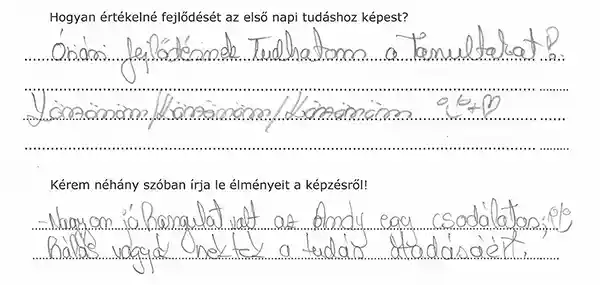 Hogyan értékelné fejlődését az első napi tudáshoz képest?
Óriási fejlődésnek Tudhatom a Tanultakat!
Köszönöm/Köszönöm/Köszönöm
Kérem néhány szóban írja le élményeit a képzésről!
-Nagyon jó hangulat volt az Andy egy csodálatos;
hálás vagyok nektek a tudás átadásáért.